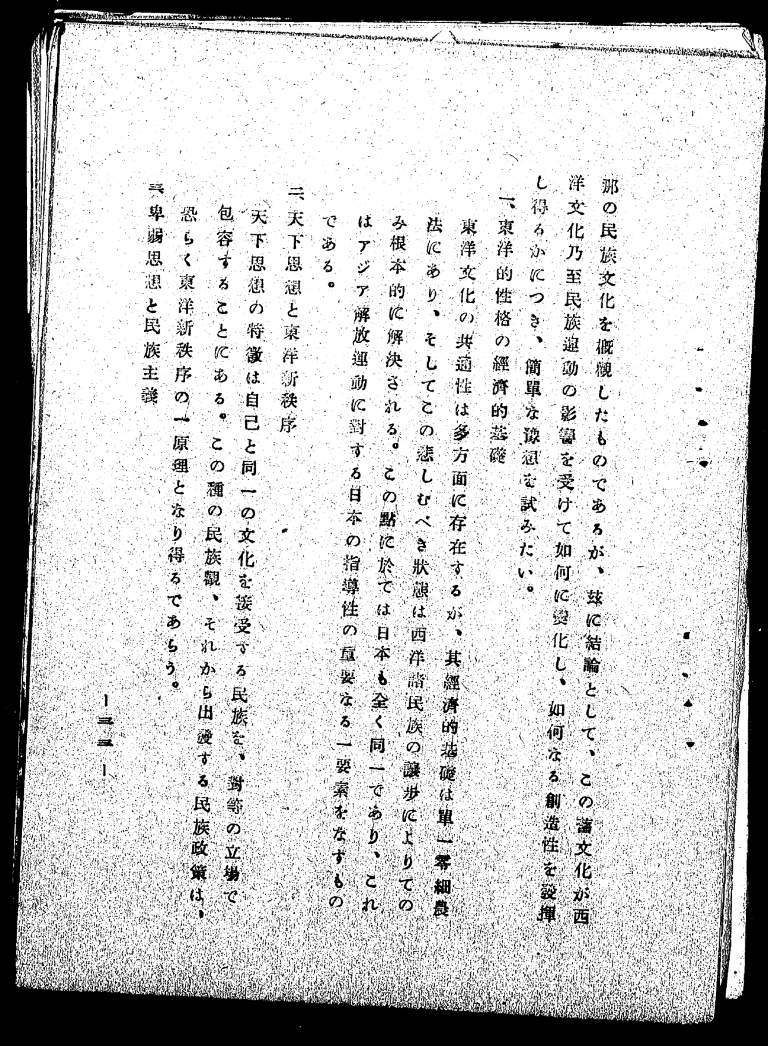 那の民族文化を概観したものであるが、玆に結論として、この舊文化が西
洋文化乃至民族運動の影響を受けて如何に變化し、如何なる創造性を發揮
し得るかにつき、簡單な豫想を試みたい。
一、東洋的性格の經濟的基礎
東洋文化の共通性は多方面に存在するが、其經濟的基礎は單一零細農
法にあり、そしてこの悲しむべき狀態は西洋諸民族の讓步によりての
み根本的に解決される。この點に於ては日本も全く同一であり、これ
はアジア解放運動に對する日本の指導性の重要なる一要素をなすもの
である。
二、天下思想と東洋新秩序
天下思想の特徵は自己と同一の文化を接受する民族を、對等の立場で
包容することにある。この種の民族觀、それから出發する民族政策は、
恐らく東洋新秩序の一原理となり得るであらう。
三、卑弱思想と民族主義
—三三—